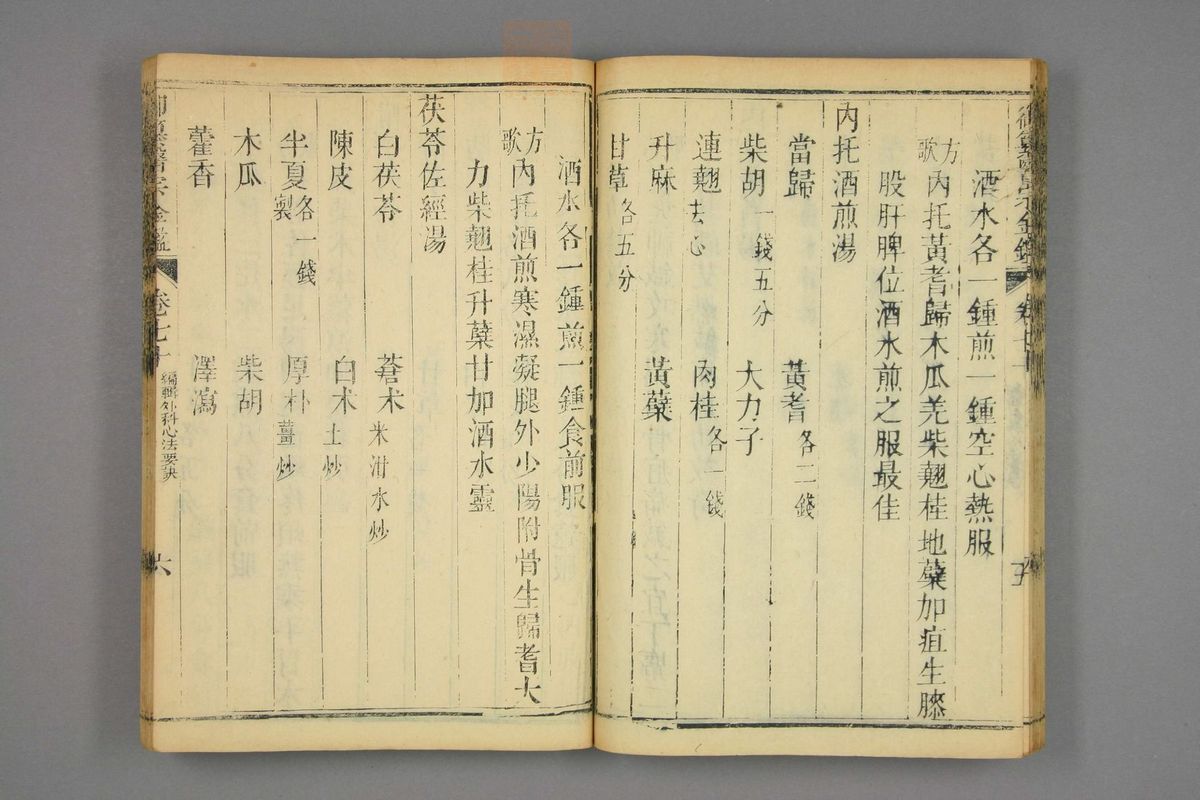 御纂醫宗金鑑 卷七十 五
酒水各一鍾煎一鍾空心熱服
方歌 內托黃耆歸木瓜羌柴翹桂地蘗加疽生膝
股肝脾位酒水煎之服最佳
內托酒煎湯
當歸 黃耆各二錢
柴胡一錢五分 大力子
連翹去心 肉桂各一錢
升麻 黃蘗
甘草各五分
酒水各一鍾煎一鍾食前服
方歌 內托酒煎寒濕凝腿外少陽附骨生歸耆大
力柴翹桂升蘗甘加酒水靈
茯苓佐經湯
白茯苓 蒼术米泔水炒
陳皮 白术土炒
半夏製各一錢 厚朴薑炒
木瓜 柴胡
藿香 澤瀉
御纂醫宗金鑑 卷七十 編輯外科心法要訣 六